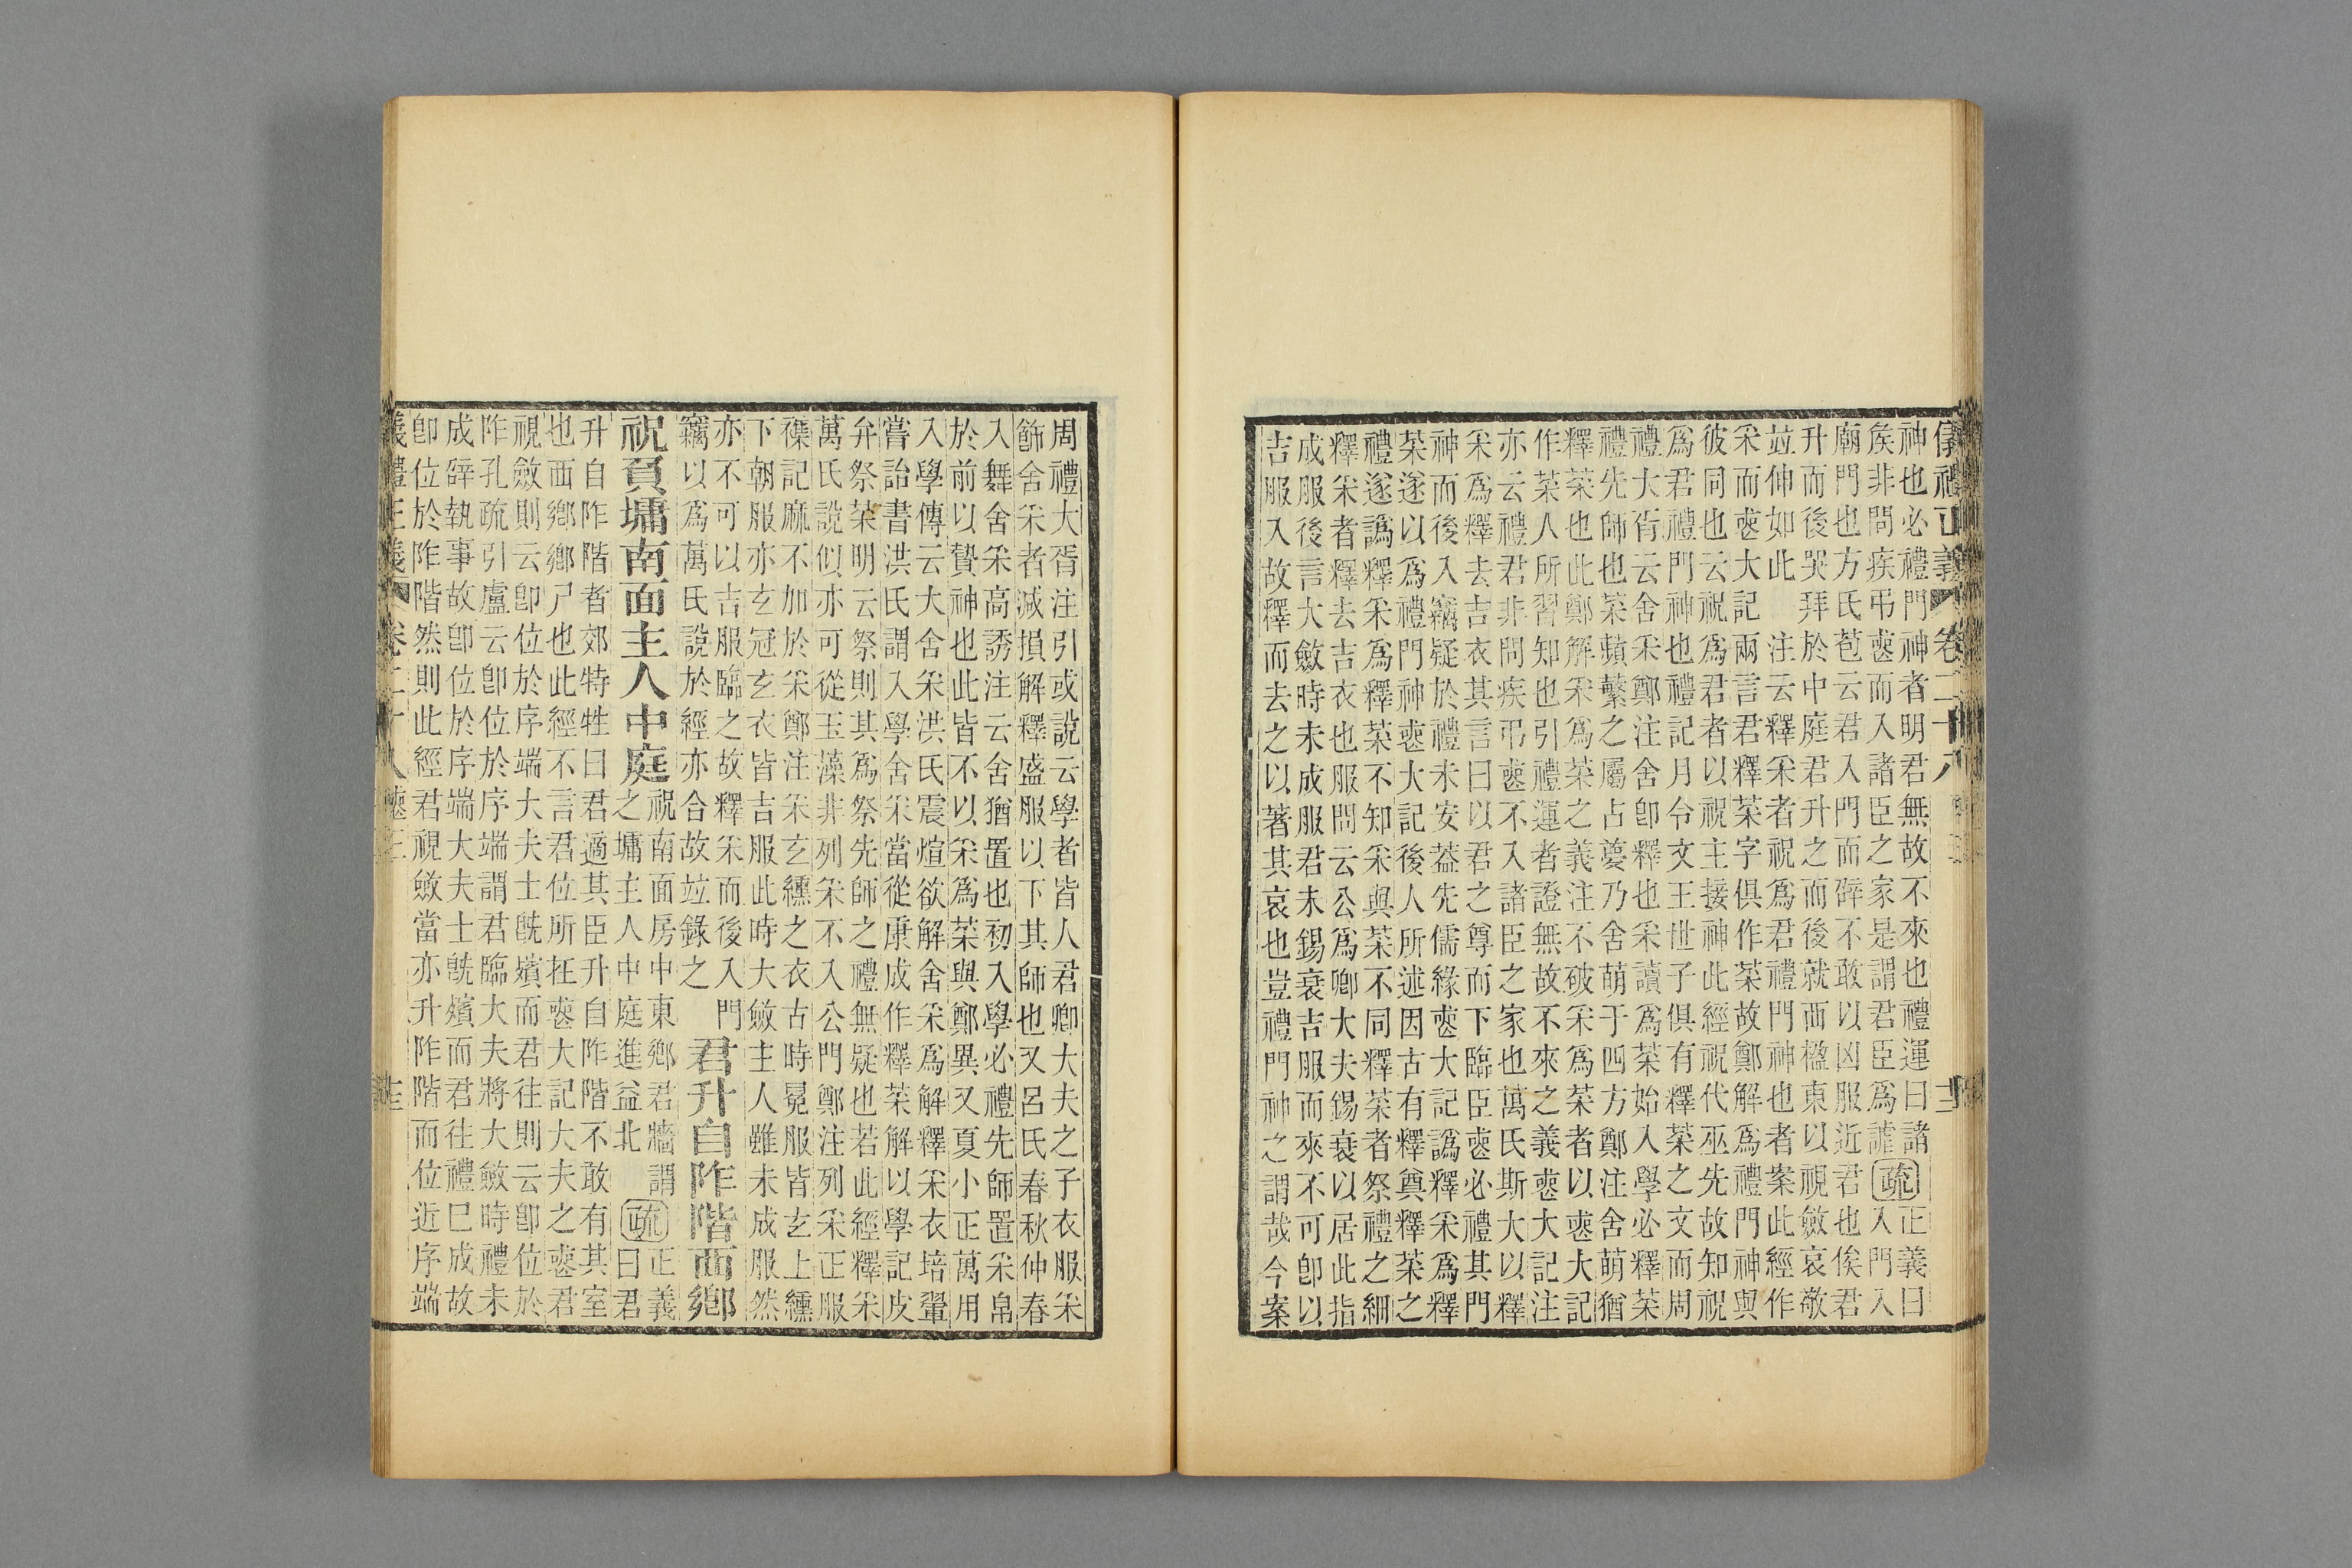 儀禮正義 卷二十八
神也必禮門神者明君無故不來也禮運曰諸
矦非問疾弔喪而入諸臣之家是謂君臣爲謔
疏
正義曰
入門入
廟門也方氏苞云君入門而辟不敢以凶服近君也俟君
升而後哭拜於中庭君升之而後就西楹東以視斂哀敬
竝伸如此　注云釋采者祝爲君禮門神也者案此經作
采而喪大記兩言君釋菜字俱作菜故鄭解爲禮門神與
彼同也云祝爲君者以祝主接神此經祝代巫先故知祝
爲君禮門神也禮記月令文王世子俱有釋菜之文而周
禮大胥云舍采鄭注舍卽釋也采讀爲菜始入學必釋菜
禮先師也菜蘋蘩之屬占夢乃舍萌于四方鄭注舍萌猶
釋菜也此鄭解采爲菜之義注不破采爲菜者以喪大記
作菜人所習知也引禮運者證無故不來之義喪大記注
亦云禮君非問疾弔喪不入諸臣之家也萬氏斯大以釋
采爲釋去吉衣其言曰以君之尊而下臨臣喪必禮其門
神而後入竊疑於禮未安葢先儒緣喪大記譌釋采爲釋
菜遂以爲禮門神喪大記後人所述因古有釋奠釋菜之
禮遂譌釋采爲釋菜不知采與菜不同釋菜者祭禮之細
釋采者釋去吉衣也服問云公爲卿大夫錫衰以居此指
成服後言大斂時未成服君未錫衰吉服而來不可卽以
吉服入故釋而去之以著其哀也豈禮門神之謂哉今案
周禮大胥注引或說云學者皆人君卿大夫之子衣服采
飾舍采者減損解釋盛服以下其師也又呂氏春秋仲春
入舞舍采高誘注云舍猶置也初入學必禮先師置采帛
於前以贄神也此皆不以采爲菜與鄭異又夏小正萬用
入學傳云大舍采洪氏震煊欲解舍采爲解釋采衣培翬
嘗詒書洪氏謂入學舍采當從康成作釋菜解以學記皮
弁祭菜明云祭則其爲祭先師之禮無疑也若此經釋采
萬氏說似亦可從玉藻非列采不入公門鄭注列采正服
襍記麻不加於采鄭注采玄纁之衣古時冕服皆玄上纁
下朝服亦玄冠玄衣皆吉服此時大斂主人雖未成服然
亦不可以吉服臨之故釋采而後入門
竊以爲萬氏說於經亦合故竝錄之
君升自阼階西鄉
祝負墉南面主人中庭
祝南面房中東鄉君牆謂
之墉主人中庭進益北
疏
正義
曰君
升自阼階者郊特牲曰君適其臣升自阼階不敢有其室
也西鄉鄉尸也此經不言君位所在喪大記大夫之喪君
視斂則云卽位於序端大夫士旣殯而君往則云卽位於
阼孔疏引盧云卽位於序端謂君臨大夫將大斂時禮未
成辟執事故卽位於序端大夫士旣殯而君往禮已成故
卽位於阼階然則此經君視斂當亦升阼階而位近序端